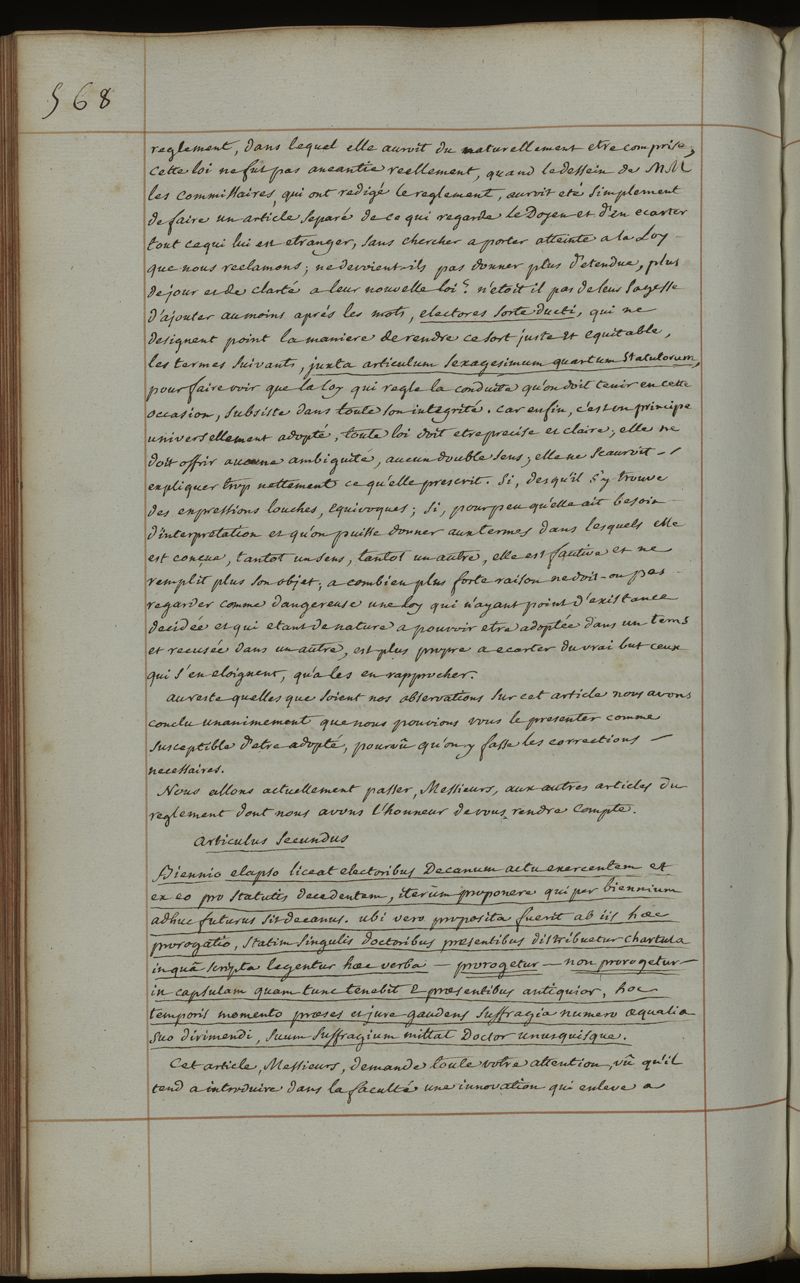 568
reglement, dans lequel elle auroit du naturellement etre comprise;
cette loi ne fut pas aneantie reellement, quand le dessein de MM
les commissaires, qui ont redigé le reglement, auroit eté simplement
de faire un article separé de ce qui regarde le Doyen et d'en ecarter
tout ce qui lui est etranger, sans chercher a porter atteinte a la Loy
que nous reclamons; ne devoient-ils pas donner plus d'etendue, plus
de jour et de clarté a leur nouvelle loi? n'etoit il pas de leur sagesse
d'ajouter au moins aprés les mots, electores sorte ducti, qui ne
designent point la maniere de rendre ce sort juste et equitable,
les termes suivants, juxta articulum sexagesimum quartum statutorum,
pour faire voir que la loy qui regle la conduite qu'on doit tenir en cette
occasion, subsiste dans toute son integrité. car enfin, c'est un principe
universellement adopté, toute loi doit etre precise et claire; elle ne
doit offrir aucune ambiguité, aucun double sens; elle ne scauroit -
expliquer trop nettement ce qu'elle prescrit. Si, des qu'il s'y trouve
des expressions louches, equivoques; si, pour peu qu'elle ait besoin
d'interpretation et qu'on puisse donner aux termes dans lesquels elle
est conçue, tantot un sens, tantot un autre, elle est fautive et ne
remplit plus son objet; a combien plus forte raison ne doit-on pas
regarder comme dangereuse une loy qui n'ayant point d'existance
decidée et qui etant de nature a pouvoir etre adoptée dans un tems
et recusée dans un autre, est plus propre a ecarter du vrai but ceux
qui s'en eloignent, qu'a les en rapprocher.
au reste quelles que soient nos observations sur cet article nous avons
conclu unanimement que nous pouvions vous le presenter comme
susceptible d'etre adopté, pourvû qu'on y fasse les corrections -
necessaires.
Nous allons actuellement passer, Messieurs, aux autres articles du
reglement dont nous avons l'honneur de vous rendre compte.
articulus secundus
Biennio elapso liceat electoribus Decanum actu exercentem et
ex eo pro statutis decedentem, iterum proponere qui per biennium
adhuc futurus sit decanus. ubi vero proposita fuerit ab iis hæc
prorogatio, statim singulis doctoribus præsentibus distribuetur chartula
in quâ scripta legentur hæc verba - prorogetur - non prorogetur -
in capsulam quam tunc tenebit è præsentibus antiquior, hoc
temporis momento præses et jure gaudens suffragia numero æqualia
suo dirimendi, suum suffragium mittat Doctor unusquisque.
Cet article, Messieurs, demande toute votre attention, vû qu'il
tend a introduire dans la faculté une innovation qui enleve a